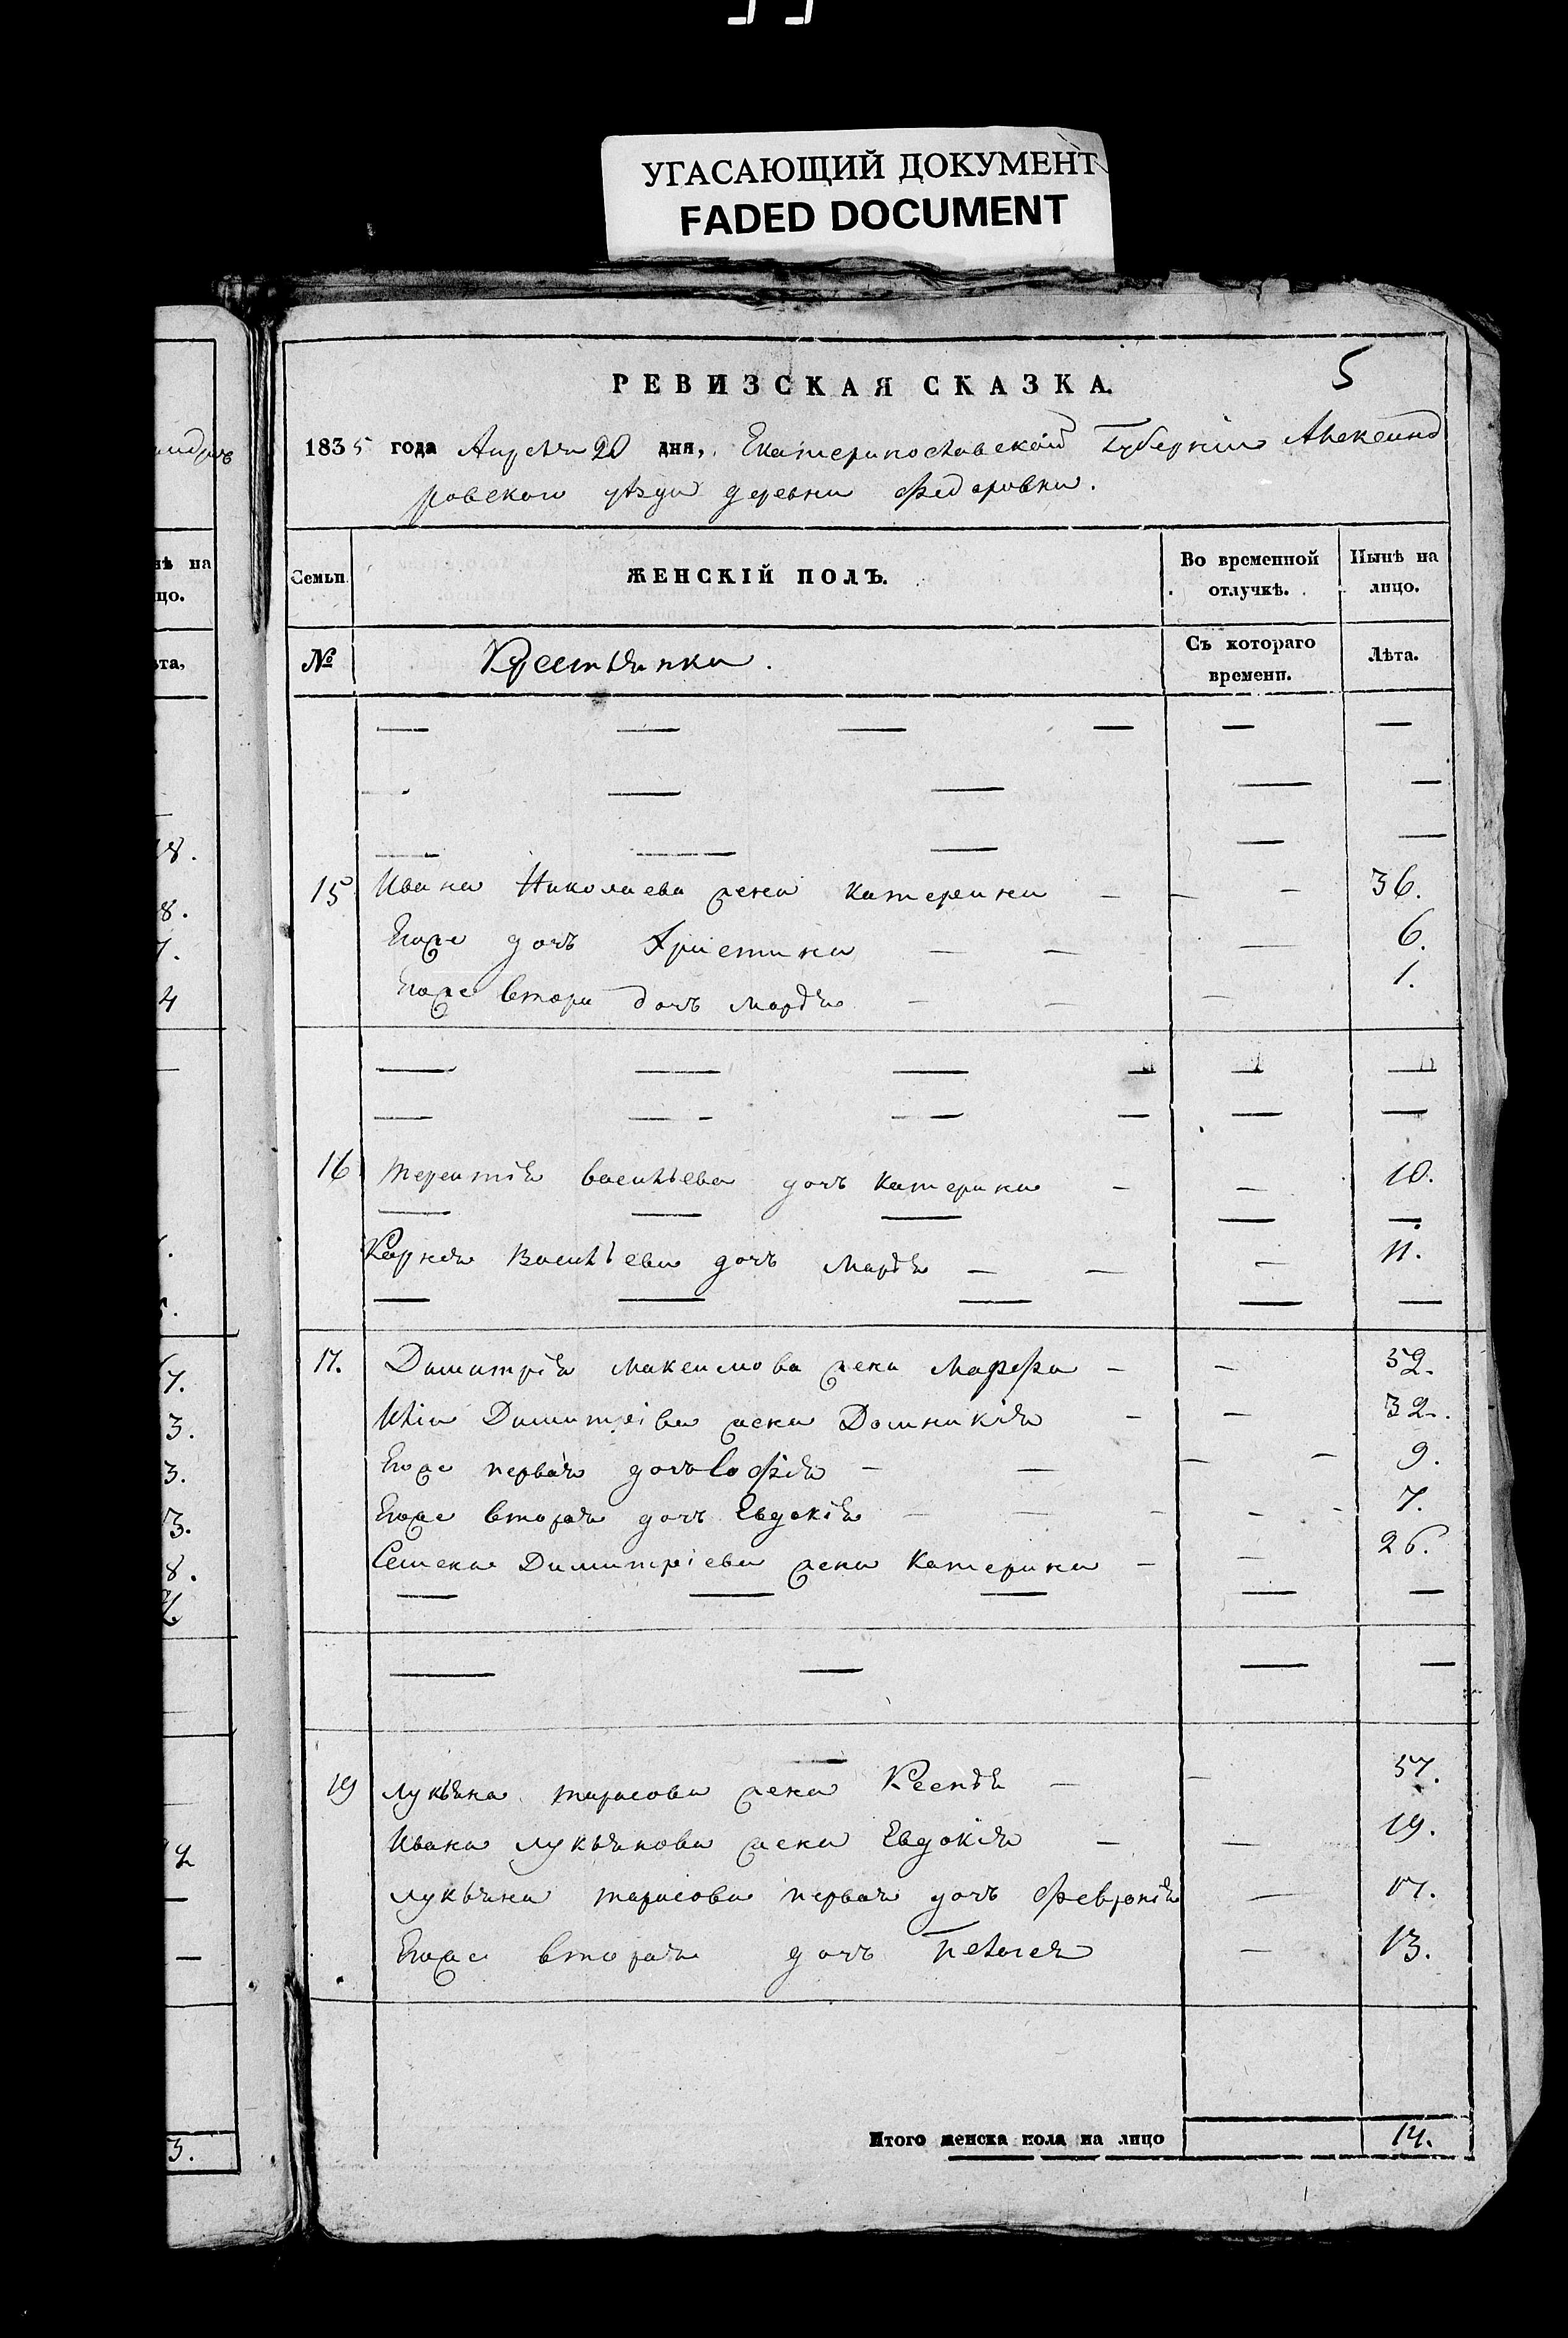 УГАСАЮЩИЙ ДОКУМЕНТ
FADED DOCUMENT
РЕВИЗСКАЯ СКАЗКА.
5
1835 года Апреля 20 дня, Екатеринославской Губернии Александ
ровского уезда деревни Федоровки.
Семьи.
ЖЕНСКІЙ ПОЛЪ.
Во временной отлучкѣ.
Нынѣ на лицо.
№
Крестьянки.
Съ котораго времени.
Лѣта.
— — — — — —
— — — — —
— — — — —
15 Ивана Николаева жена Катерина — — — 36.
Егоже дочь Христина — — — 6.
Егоже втора дочь Марѳя — — — 1.
— — — — — —
— — — — — —
16 Терентія Васильева дочь Катерина — — 10.
— — — — —
Карнея Васильева дочь Марѳя — — — 11.
— — — — —
17. Димитрія Максимова жена Марфа — — 52.
Ильи Димитріева жена Домникія — — 32.
Егоже первая дочь Софія — — — — 9.
Егоже вторая дочь Евдокія — — — — - 7.
Семена Димитріева жена Катерина — — 26.
— — — — —
— — — —
—
19 Лукьяна Тарасова жена Ксенія — — 57.
Ивана Лукьянова жена Евдокія — — 19.
Лукьяна Тарасова первая дочь Февронія — 17.
Егоже вторая дочь Пелагея — 13.
Итого женска пола на лицо 14.